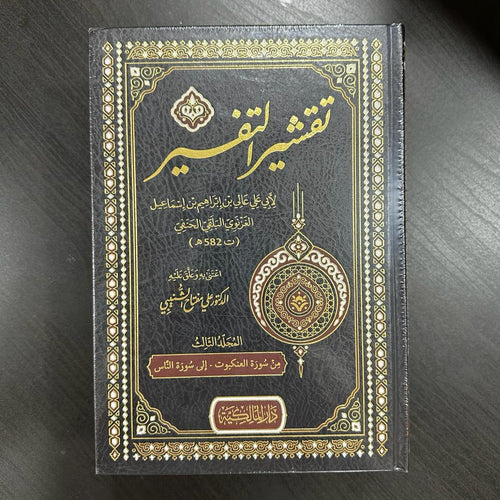 تقشير التفسير
لأبي علي عالي بن إبراهيم بن إسماعيل
الغزنوي البلقي الحنفي
(ت 582 هـ)
اعتنى به وعلق عليه
الدكتور علي مفتاح الشيبي
المجلد الثالث
من سورة العنكبوت - إلى سورة الناس
دار المالكية